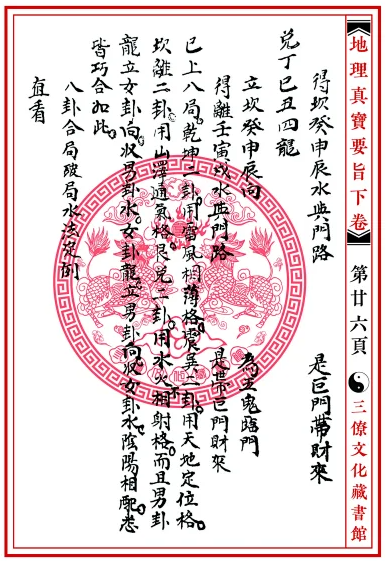 地理真寶要旨下卷
第廿六頁
三僚文化藏書館
得坎癸申辰水與門路　是巨門帶財來
兌丁巳丑四龍
立坎癸申辰向　為五鬼臨門
得離壬寅戌水與門路　是帶巨門財來
已上八局。乾坤二卦用雷風相薄格。震巽二卦用天地定位格。
坎離二卦用山澤通氣格。艮兌二卦用水火相射格。而且男卦
龍立女卦向收男卦水。女卦龍立男卦向收女卦水。陰陽相配。悉
皆巧合如此。
八卦合局破局水法定例
直看